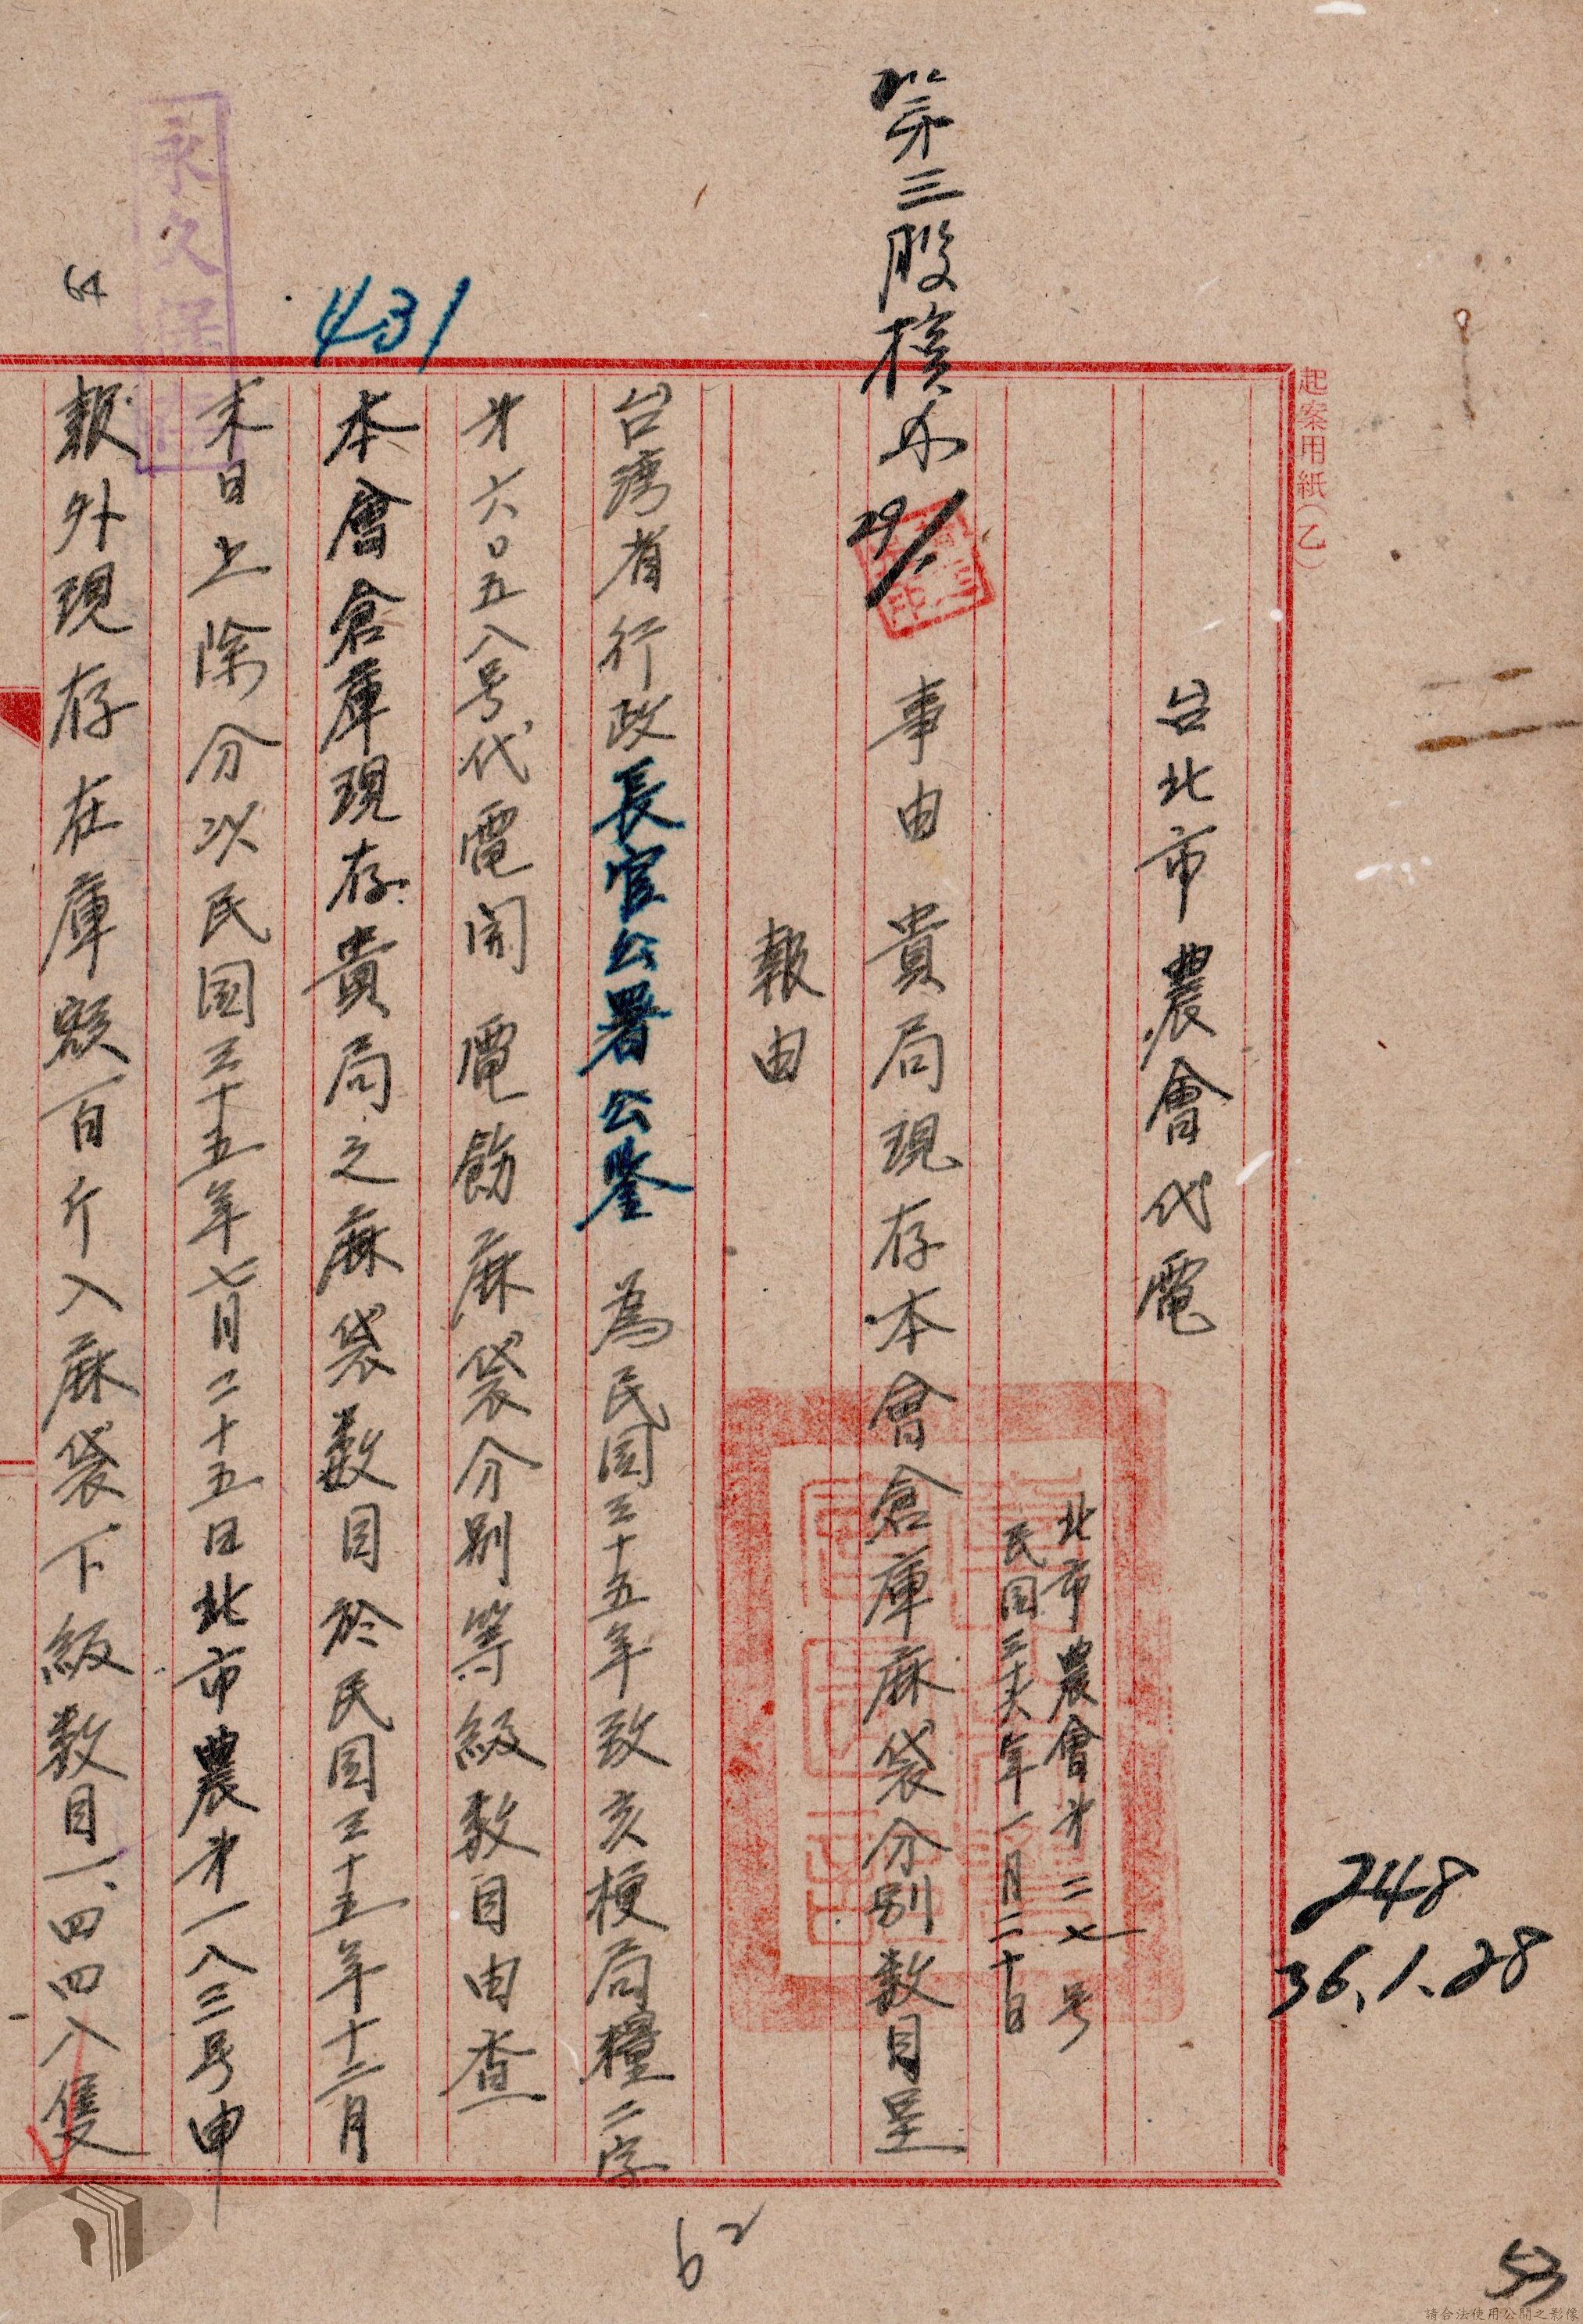 起案用紙（乙）
台北市農會代電
北市農會才二七号
民国三十六年一月二十日
第三股擬办 29/1
事由 貴局現存本會倉庫麻袋分別数目呈
報由
台湾省行政長官公署公鑒 為民国三十五年致亥梗局糧二字
才六〇五八号代電開電飭麻袋分別等級数目由查
本會倉庫現存貴局之麻袋数目於民国三十五年十二月
末日上除分以民国三十五年七月二十五日北市農才一八三号申
報外現存在庫額百斤入麻袋下級数目一、四四八隻
永久保存
431
64
248
36.1.28
62
53
請合法使用公開之影像